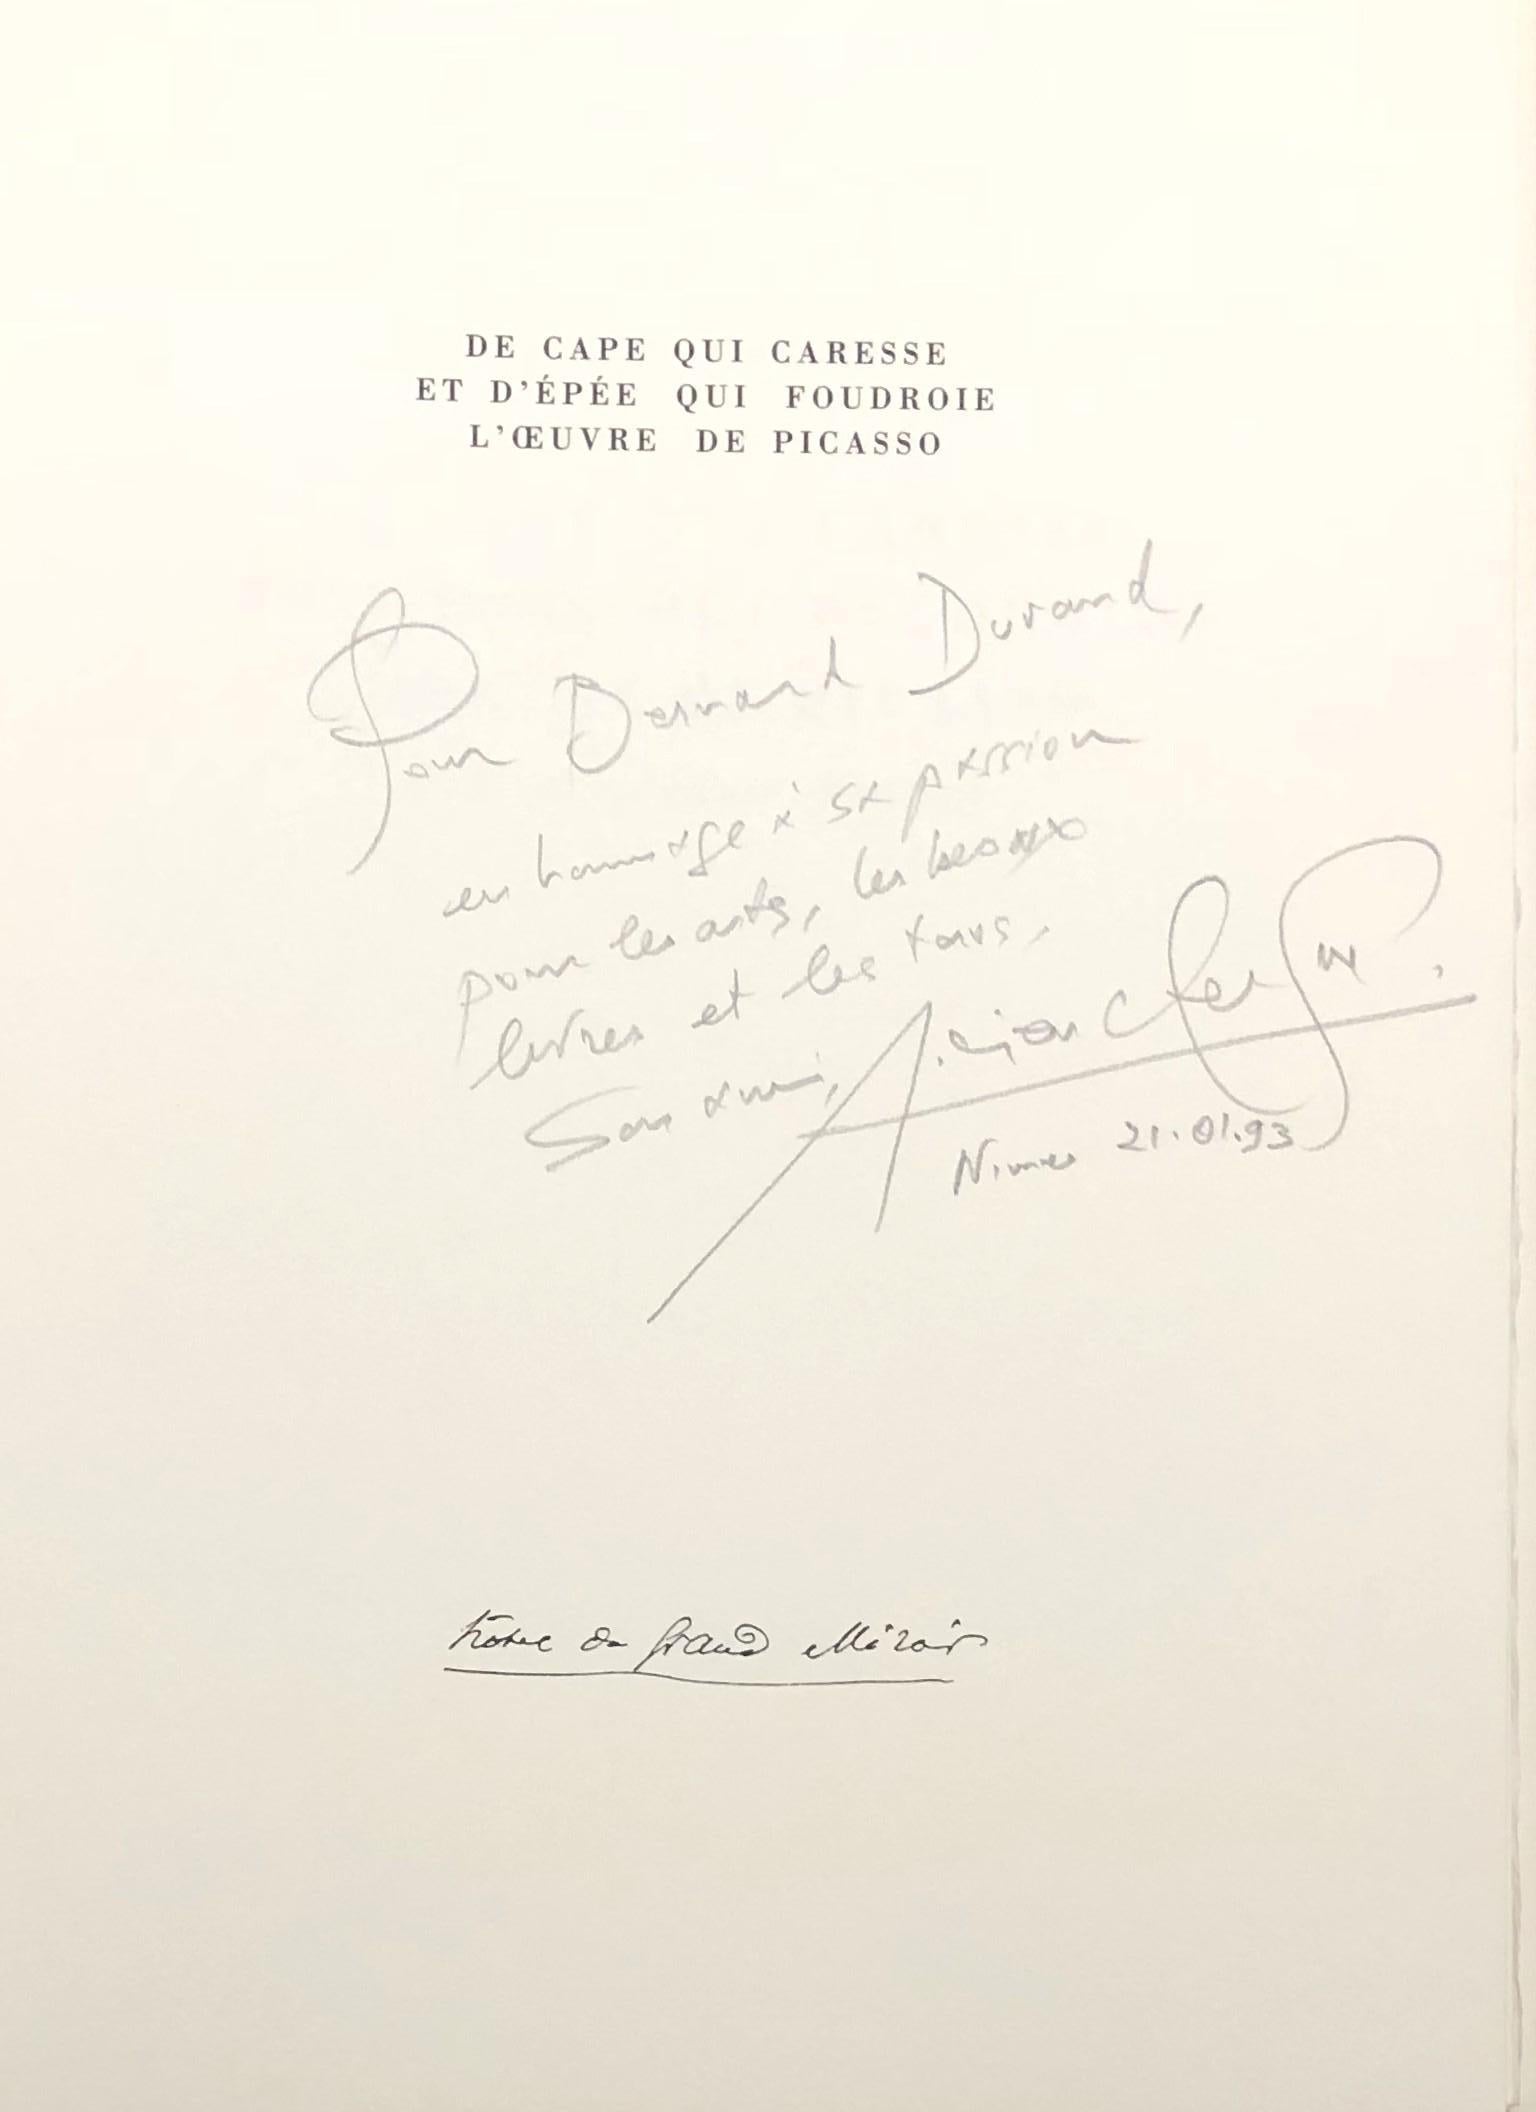 DE CAPE QUI CARESSE
ET D'ÉPÉE QUI FOUDROIE
L'ŒUVRE DE PICASSO
Pour Bernard Durand,
en hommage à sa passion
pour les arts, les beaux
livres et les toros.
Son ami, Lucien Clergue.
Nimes 21.01.93
hôtel du grand Miroir